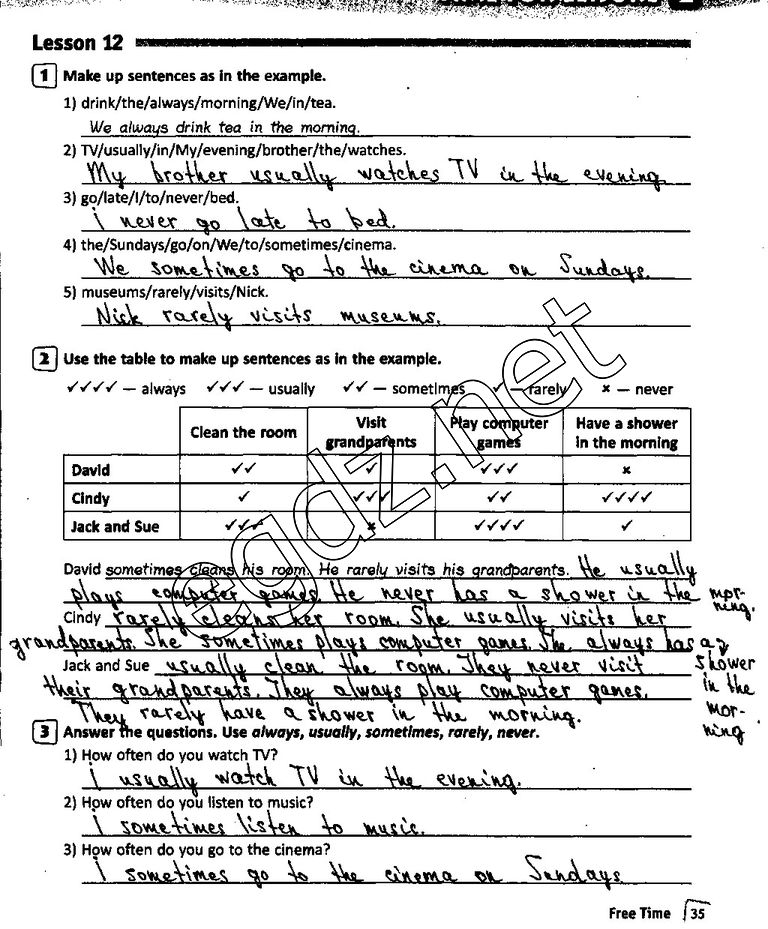 Lesson 12
1 Make up sentences as in the example.
1) drink/the/always/morning/We/in/tea.
We always drink tea in the morning.
2) TV/usually/in/My/evening/brother/the/watches.
My brother usually watches TV in the evening.
3) go/late/I/to/never/bed.
I never go late to bed.
4) the/Sundays/go/on/We/to/sometimes/cinema.
We sometimes go to the cinema on Sundays.
5) museums/rarely/visits/Nick.
Nick rarely visits museums.
2 Use the table to make up sentences as in the example.
✓✓✓✓ — always ✓✓✓ — usually ✓✓ — sometimes ✓ — rarely × — never
Clean the room Visit grandparents Play computer games Have a shower in the morning
David ✓✓ ✓ ✓✓✓ ×
Cindy ✓ ✓✓✓ ✓✓ ✓✓✓✓
Jack and Sue ✓✓✓ × ✓✓✓✓ ✓
David sometimes cleans his room. He rarely visits his grandparents. He usually
plays computer games. He never has a shower in the mor-
ning.
Cindy rarely cleans her room. She usually visits her
grandparents. She sometimes plays computer games. She always has a
shower
in the
mor-
ning
Jack and Sue usually clean the room. They never visit
their grandparents. They always play computer games.
They rarely have a shower in the morning.
3 Answer the questions. Use always, usually, sometimes, rarely, never.
1) How often do you watch TV?
I usually watch TV in the evening.
2) How often do you listen to music?
I sometimes listen to music.
3) How often do you go to the cinema?
I sometimes go to the cinema on Sundays
Free Time 35
gdz.net